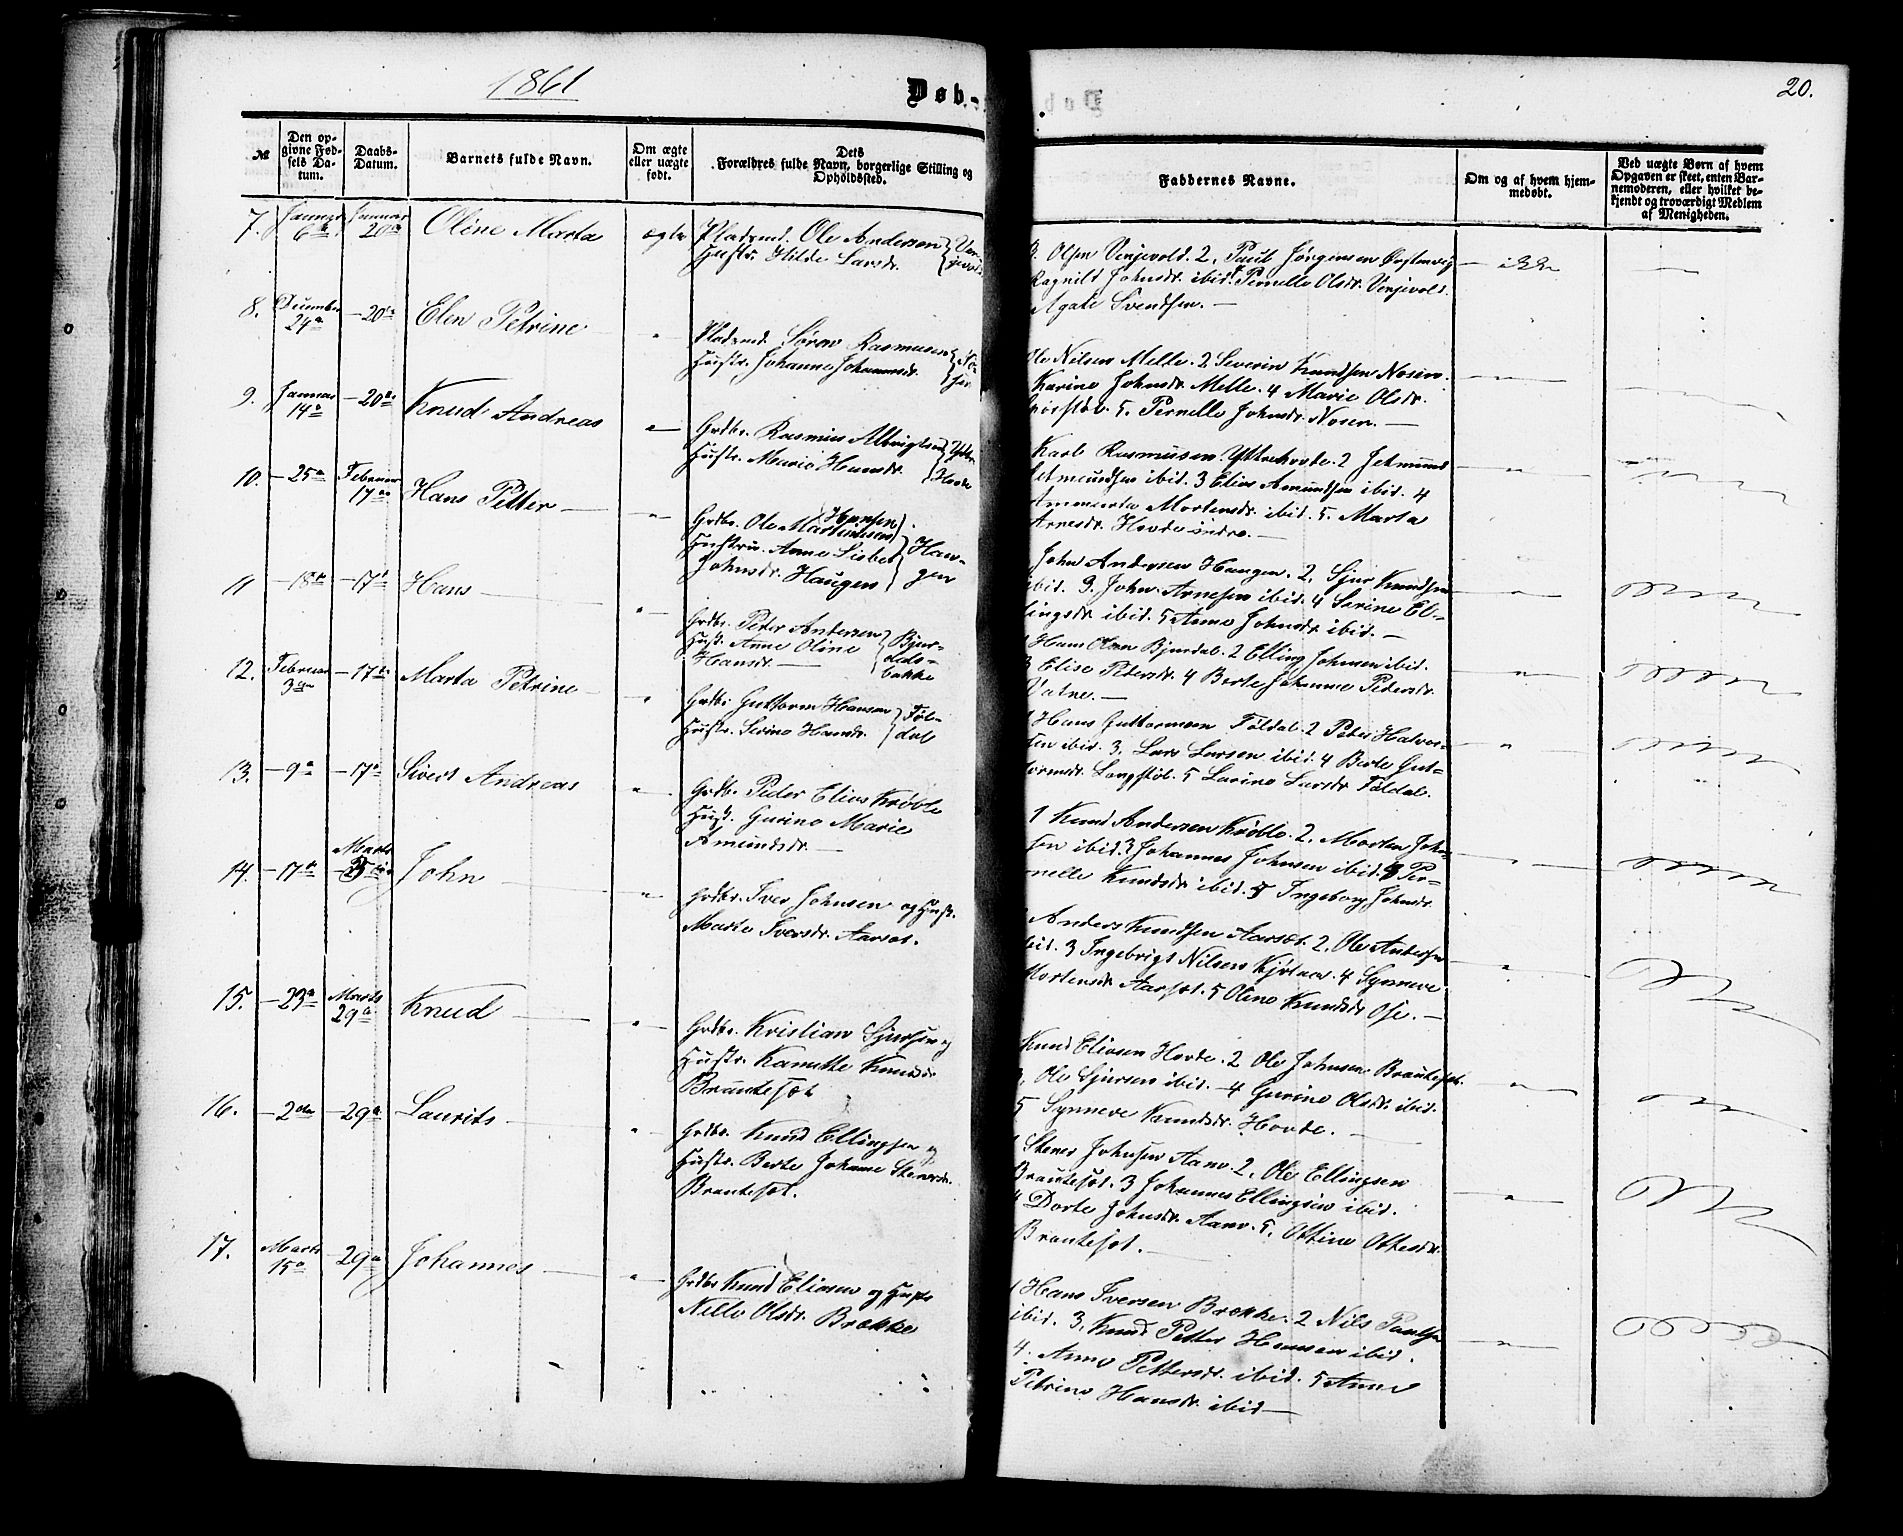 1861
Døb-
20.
№
Den op-
givne Fød-
sels Da-
tum.
Daabs-
Datum.
Barnets fulde Navn.
Om ægte
eller uægte
født.
Dets
Forældres fulde Navn, borgerlige Stilling og
Opholdssted.
Faddernes Navne.
Om og af hvem hjem-
medøbt.
Ved uægte Børn af hvem
Opgaven er skeet, enten Bar-
nemoderen, eller hvilket be-
kjendt og troværdigt Medlem
af Menigheden.
7. Januar 6te Januar 20de Oline Marta ægte Pladsmd. Ole Andersen
Hustr. Hilde Larsdr.
Olsen Venjevold. 2, Paul Jørgensen Ørstenvig ikke
Ragnild Johnsdr. ibid. Pernelle Olsdr. Venjevold.
Agate Svendsen.
8. December 24de 20de Elen Petrine " Pladsmd. Søren Rasmusen
Hustr. Johanne Johannesdr.
Ole Nilsen Melle. 2 Severin Knudsen Nosen.
Karine Johnsdr. Melle. 4 Marie Olsdr.
5. Pernelle Johnsdr. Nosen.
9. Januar 14de 20de Knud Andreas " Grdbr. Rasmus Albrigtsen Ytter
Hustr. Marie Hansdr. Hovde
Karl Rasmusen Yttrehovde. 2 Jetmund "
Jetmundsen ibid. 3 Elias Amundsen ibid. 4
Mortensdr. ibid. 5. Marta
Arnesdr. Hovde indre.
10. 25de Februar 17de Hans Petter " Hansen
Grdbr. Ole Martinusen
Hustru. Anne Lisbet Hau-
Johnsdr. Haugen gen
John Andersen Haugen. 2, Sjur Knudsen "
ibid. 3. John Arnesen ibid. 4 Serine El-
lingsdr. ibid. 5 Anne Johnsdr. ibid.
11 18de 17de Hans " Grdbr. Peter Andersen Bjør-
Hust. Anne Oline dals-
Hansdr. bakke
1 Hans Olsen Bjørdal. 2 Elling Johnsen ibid. "
3 Elise Pedersdr. 4 Berte Johanne Pedersdr.
Vatne.
12. Februar 3die 17de Marta Petrine " Grdbr. Guttorm Hansen Føl-
Hustr. Serine Hansdr. dal
1 Hans Guttormsen Føldal. 2 Peter Halvor- "
sen ibid. 3, Lars Larsen ibid. 4 Berte Gut-
tormsdr. Langstøl. 5 Larine Larsdr. Føldal.
13. 9de 17de Sivert Andreas " Grdbr. Peder Elias Krøvle
Hust. Gurine Marie
Amundsdr.
1 Knud Andersen Krøvle. 2, Morten John- "
sen ibid. 3 Johannes Johnsen ibid. 4 Per-
nelle Knudsdr. ibid. 5 Ingeborg Johnsdr.
14. 17de Marts John " Grdbr. Iver Johnsen og Hust.
Marte Iversdr. Aarset.
Anders Knudsen Aarset. 2, Ole Andersen "
ibid. 3 Ingebrigt Nilsen 4 Synneve
Mortensdr. Aarset. 5 Oline Knudsdr. Ose.
15. 23de Marts 29de Knud " Grdbr. Kristian Sjursen og
Hustr. Kanutte Knudsdr.
Brautesæt
Knud Eliasen Hovde. 2 Ole Johnsen Brautesæt. "
3, Ole Sjursen ibid. 4 Gurine Olsdr. ibid.
5 Synneve Knudsdr. Hovde.
16. 2den 29de Laurits " Grdbr. Knud Ellingsen og
Hustr. Berte Johanne Stenersdr.
Brautesæt.
1 Stener Johnsen Aam. 2, Ole Ellingsen
Brautesæt. 3 Johannes Ellingsen ibid. "
4 Dorte Johnsdr. Aam. 5, Ottine Ottesdr.
Brautesæt.
17. Marts 15de 29de Johannes " Grdbr Knud Eliasen og Hustr
Nille Olsdr. Brekke
1 Hans Iversen Brekke. 2 Nils Paulsen
ibid. 3, Knud Petter Hansen ibid. "
4. Anne Pettersdr. ibid. 5 Anne
Petrine Hansdr. ibid